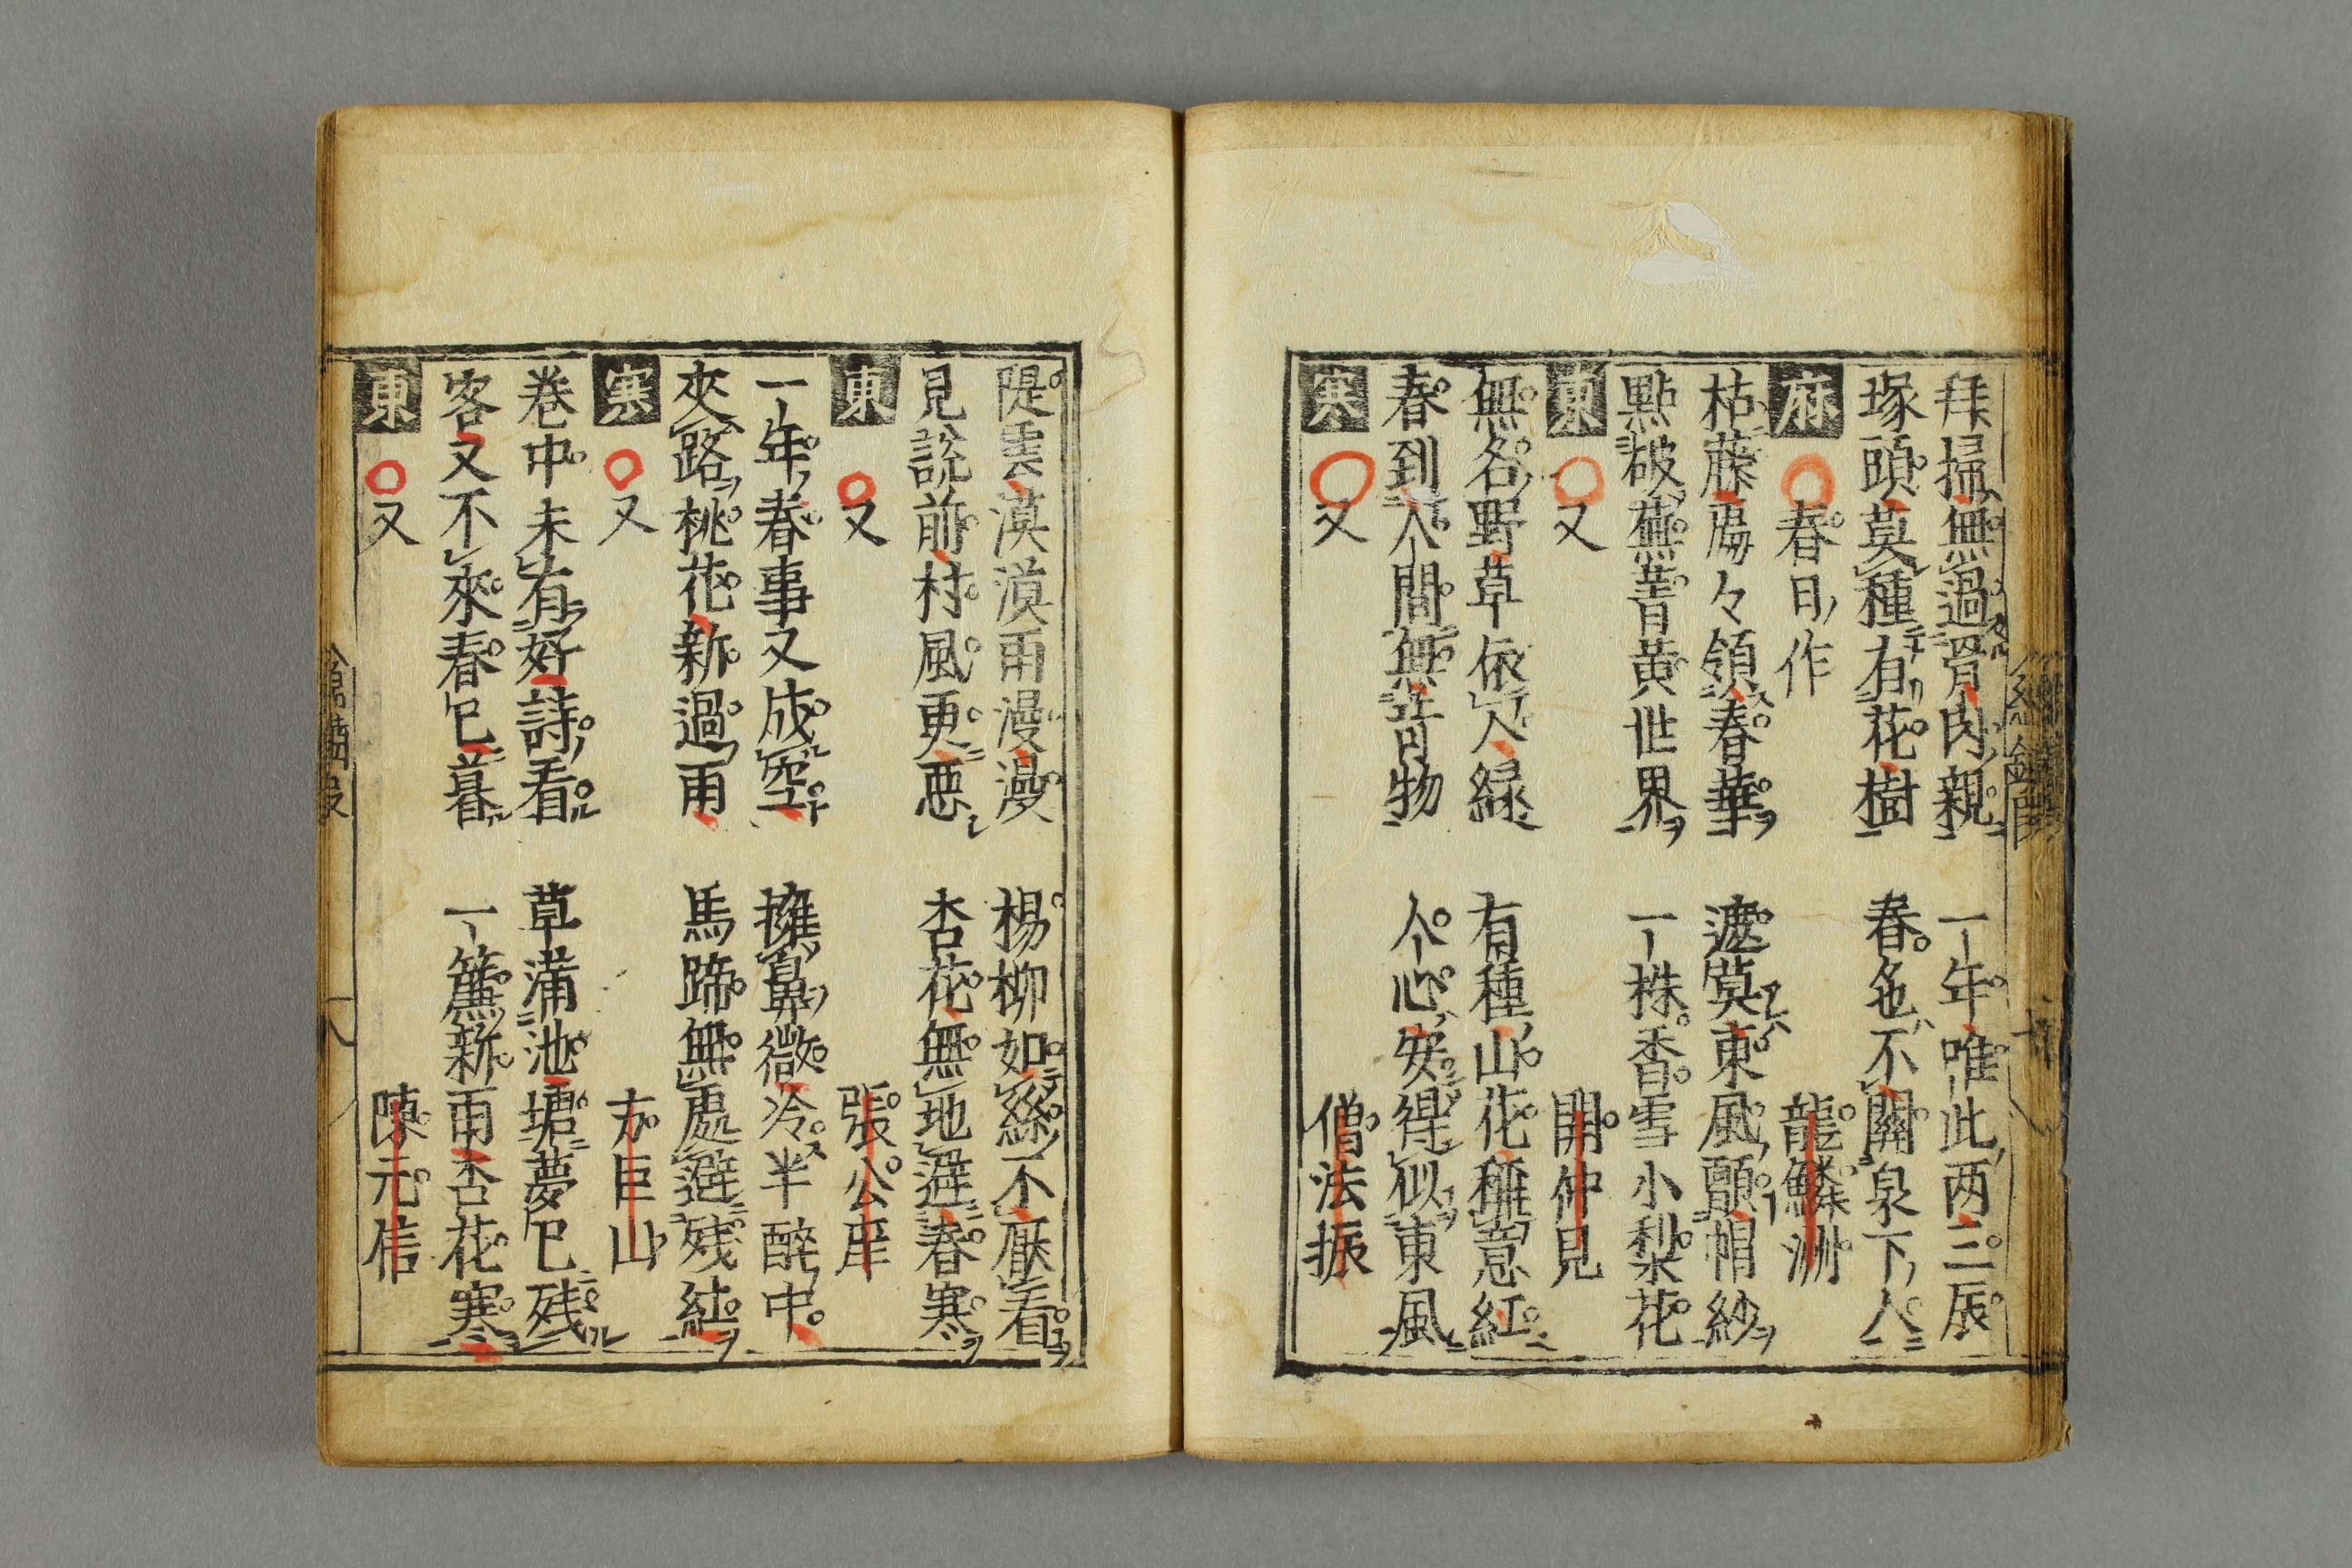 拜掃無過骨肉親　一年唯此两三辰
塚頭莫種有花樹　春色不關泉下人
麻　春日作　龍麟洲
枯藤𢬵々領春華　遮莫東風顫帽紗
點破蕪菁黄世界　一株香雪小梨花
東　又　開仲見
無名野草依人緑　有種山花種意紅
春到人間無棄物　人心安得似東風
寒　又　僧法振
隄雲漠漠雨漫漫　楊柳如絲不厭看
見說前村風更悪　杏花無地避春寒
東　又　張公庠
一年春事又成空　擁鼻微冷半醉中
夾路桃花新過雨　馬蹄無處避残紅
寒　又　方巨山
巻中未有好詩看　草滿池塘夢已残
客又不來春已暮　一簾新雨杏花寒
東　又　陳元信